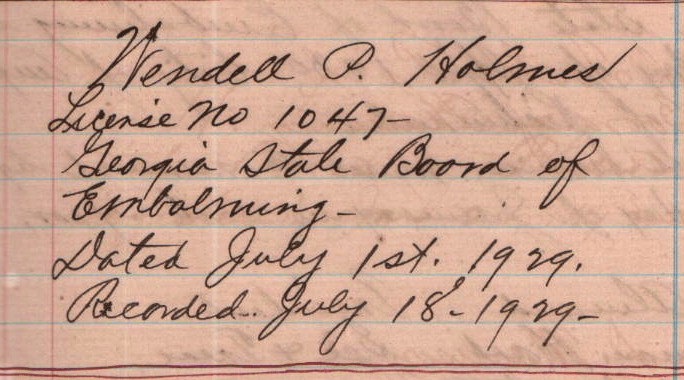 Wendell P. Holmes
License No 1047-
Georgia State Board of
Embalming-
Dated July 1st. 1929.
Recorded. July 18-1929-